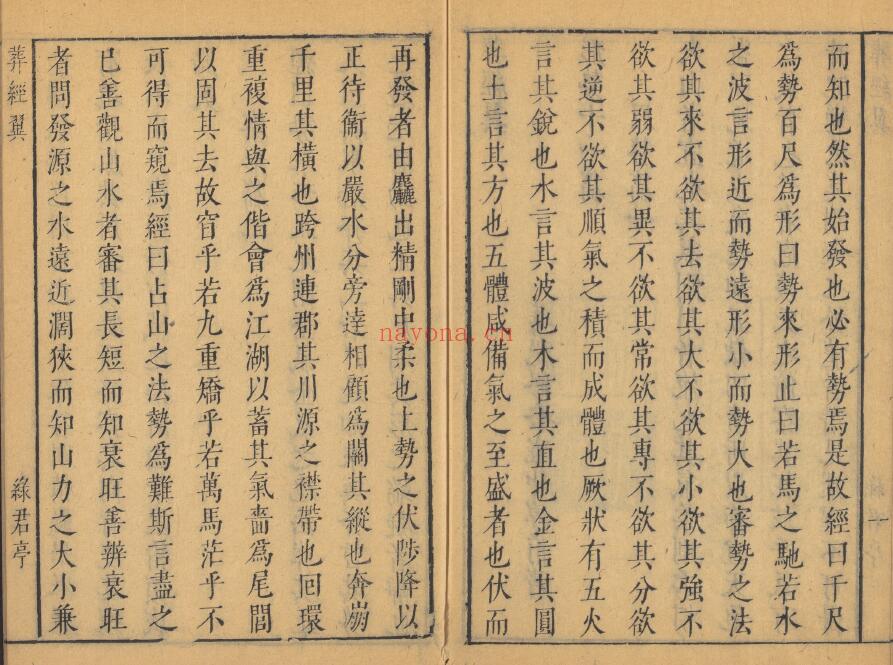 而知也然其始發也必有勢焉是故經曰千尺
爲勢百尺爲形曰勢來形止曰若馬之馳若水
之波言形近而勢遠形小而勢大也審勢之法
欲其來不欲其去欲其大不欲其小欲其強不
欲其弱欲其異不欲其常欲其專不欲其分欲
其逆不欲其順氣之積而成體也厥狀有五火
言其銳也水言其波也木言其直也金言其圓
也土言其方也五體咸備氣之至盛者也伏而
再發者由麤出精剛中柔也上勢之伏陟降以
正待衞以嚴水分旁達相顧爲關其縱也奔崩
千里其橫也跨州連郡其川源之襟帶也回環
重複情與之偕會爲江湖以蓄其氣嗇爲尾閭
以固其去故窅乎若九重矯乎若萬馬茫乎不
可得而窺焉經曰占山之法勢爲難斯言盡之
已善觀山水者審其長短而知衰旺善辨衰旺
者問發源之水遠近濶狹而知山力之大小兼
葬經翼
綠君亭
nayona.cn